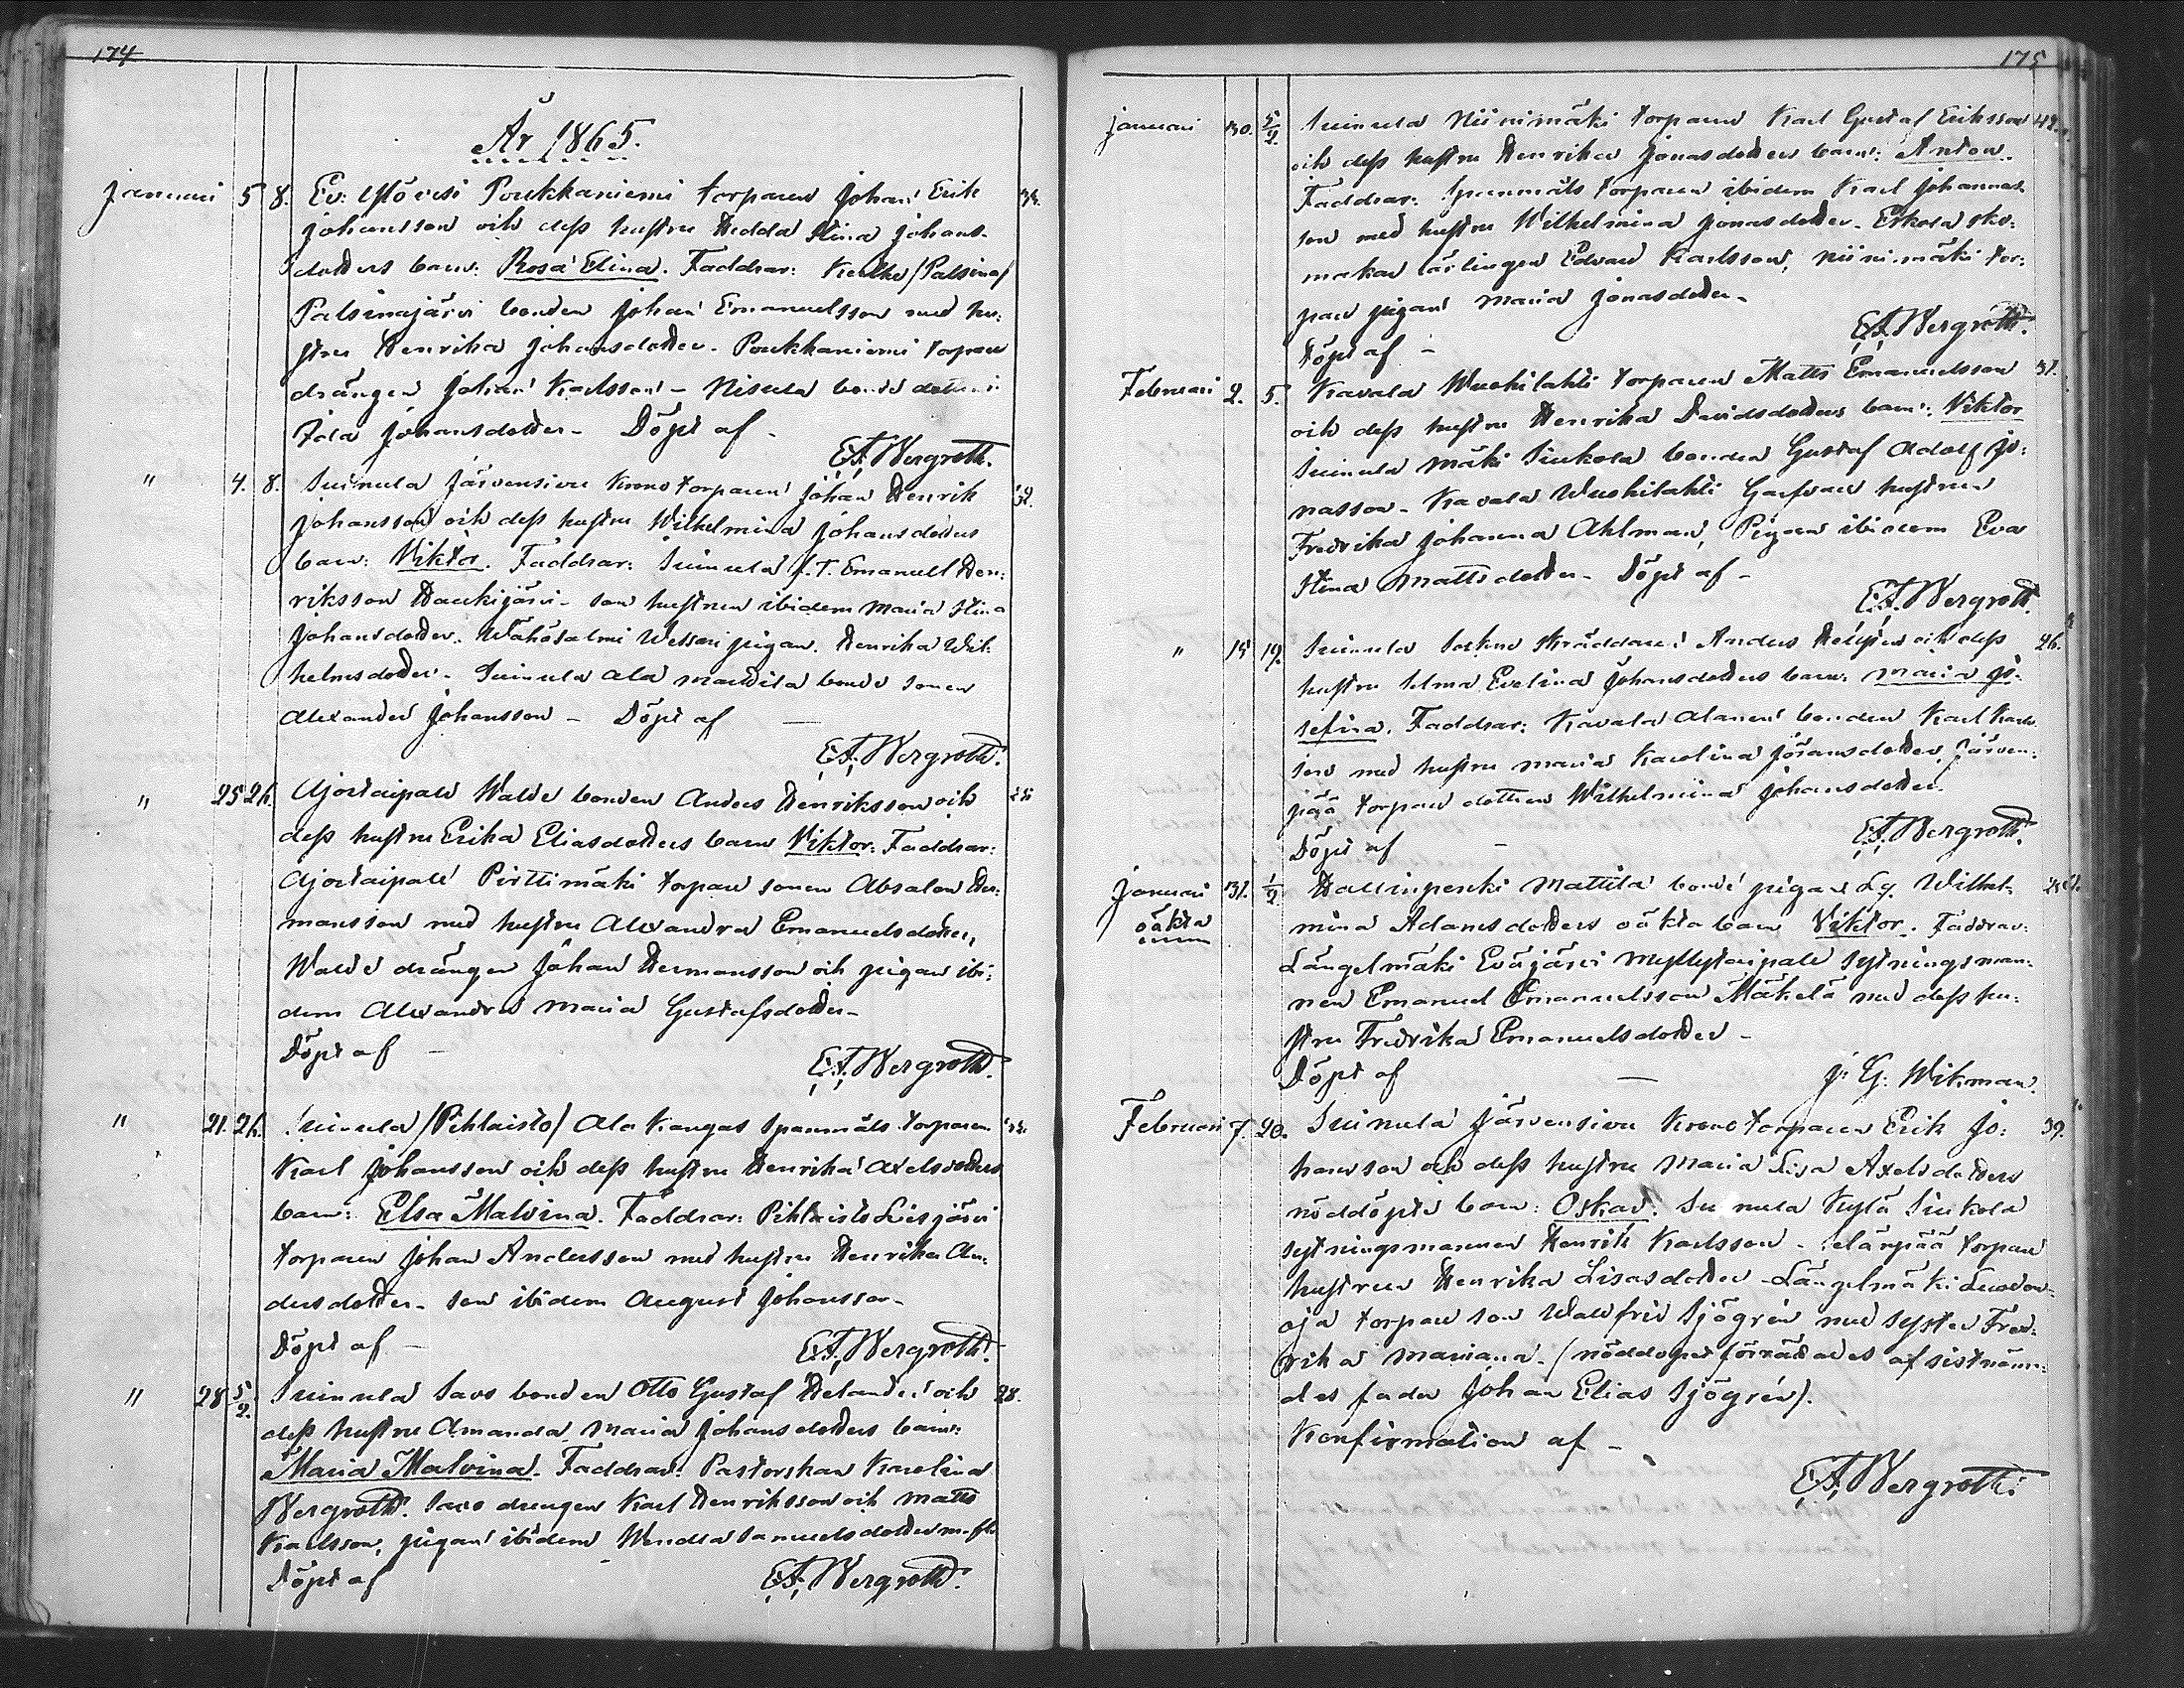 174
År 1865.
Januari 5 8. Ev: Poukkaniemi torparen Johan Erik 34.
Johansson och dess hustru Hedda Stina Johans-
dotters barn: Rosa Elina. Faddrar: /Palsina/
Palsinajärvi bonden Johan Emanuelsson med hu:
stru Henrika Johansdotter. Poukkaniemi torpare
drängen Johan Karlsson - Nisula bonde dottern
Ida Johansdotter - Döpt af -
E.A. Wergroth.
" 4. 8. Suinula Järvensivu Krono torparen Johan Henrik 32.
Johansson och dess hustru Wilhelmina Johansdotters
barn: Viktor. Faddrar: Suinula f.T. Emanuel Hen:
riksson Haukijärvi - son hustrun ibidem Maria Stina
Johansdotter. Wähösalmi Wessari pigan Henrika Wil:
helmsdotter - Suinula Ala Mattila bonde sonen
Alexander Johansson - Döpt af —
E.A. Wergroth.
" 25 26. Ajostaipale Walde bonden Anders Henriksson och
dess hustru Erika Eliasdotters barn Viktor: Faddrar:
Ajostaipale Pirttimäki torpare sonen Absalon Her:
mansson med hustru Alexandra Emanuelsdotter,
Walde drängen Johan Hermansson och pigan ibi:
dem Alexandra Maria Gustafsdotter -
Döpt af —
E.A. Wergroth.
" 21. 26. Suinula /Pihlaisto/ Ala Kangas Spannmåls torparen
Karl Johansson och dess hustru Henrika Axelsdotters
barn: Elsa Malvina. Faddrar: Pihlaisto Liesjärvi
torparen Johan Andersson med hustru Henrika An:
dersdotter - son ibidem August Johansson -
Döpt af —
E.A. Wergroth.
" 28 5/2. Suinula Savo bonden Otto Gustaf Helander och 28.
dess hustru Amanda Maria Johansdotters barn:
Maria Malvina. Faddrar: Pastorskan Karolina
Wergroth. Savo drengen Karl Henriksson och Matts
Karlsson, pigan ibidem Wendla Samuelsdotter m. fl.
Döpt af
E.A. Wergroth.
175
Januari 30. 5/2. Suinula Niinimäki torparen Karl Gustaf Eriksson 42.
och dess hustru Henrika Jonasdotters barn: Anton.
Faddrar: Spannmåls torparen ibidem Karl Johannes:
son med hustru Wilhelmina Jonasdotter. Eskola sko:
makar lärlingen Edvard Karlsson, Niinimäki tor:
pare pigan Maria Jonasdotter -
E.A. Wergroth.
Döpt af -
Februari 2. 5. Kavala Wuohilahti torparen Matts Emanuelsson 31.
och dess hustru Henrika Davidsdotters barn: Viktor
Suinula Mäki Siukola bonden Gustaf Adolf Jo:
nasson - Kavala Wuohilahti hustrun
Fredrika Johanna Ahlman, Pigan ibidem Eva
Stina Mattsdotter - Döpt af -
E.A. Wergroth.
" 15 19. Suinula Socken Skräddaren Anders och dess 26.
hustru Selma Evelina Johansdotters barn: Maria Jo-
sefina. Faddrar: Kavala Alanen bonden Karl Karls
son med hustru Maria Karolina Jöransdotter, Järven:
pää torpare dottern Wilhelmina Johansdotter.
E.A. Wergroth.
Döpt af -
Januari 31. 1/2 Hallinpenki Mattila bonde pigan Lg. Wilhel:
oäkta mina Adamsdotters oäkta barn Viktor. Faddrar:
Längelmäki Eväjärvi Myllytaipale sytningsman:
nen Emanuel Emanuelsson Mäkelä med dess hu:
stru Fredrika Emanuelsdotter -
Döpt af — J: G: Wikman
Februari 7. 20. Suinula Järvensivu Krono torparen Erik Jo: 39.
hansson och dess hustru Maria Lisa Axelsdotters
nöddöpta barn: Oskar. Suinula Kylä Siukola
sytningsmannen Henrik Karlsson - torpare
hustrun Henrika Lisasdotter - Längelmäki
oja torpare son Walfrid Sjögrén med syster Fred:
rika Mariana. (nöddopet förrättades af sistnämn:
des fader Johan Elias Sjögrén).
Konfirmation af -
E.A. Wergroth.